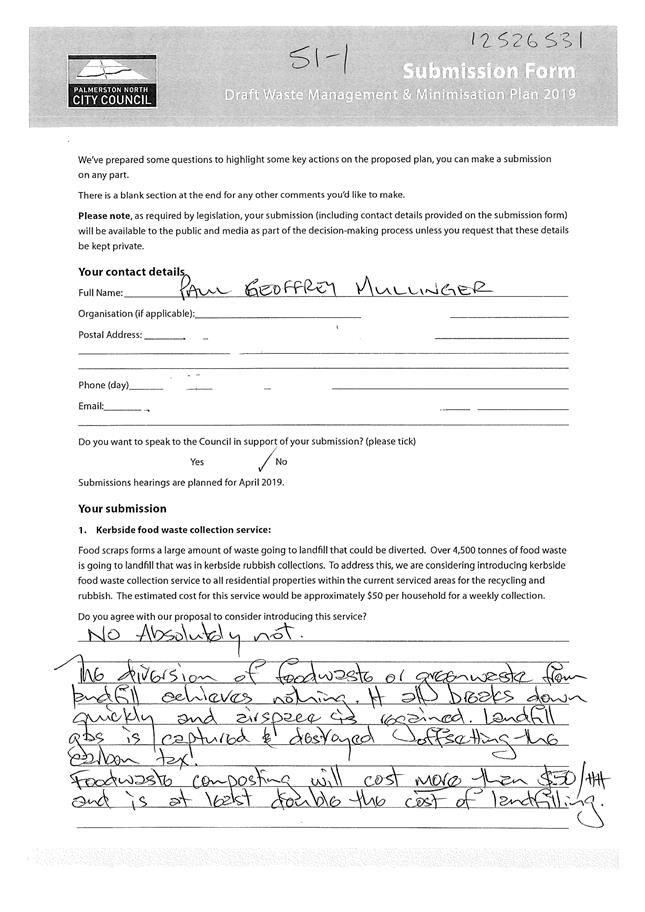 12526531
51-1
Submission Form
PALMERSTON NORTH
CITY COUNCIL
Draft Waste Management & Minimisation Plan 2019
We've prepared some questions to highlight some key actions on the proposed plan, you can make a submission
on any part.
There is a blank section at the end for any other comments you'd like to make.
Please note, as required by legislation, your submission (including contact details provided on the submission form)
will be available to the public and media as part of the decision-making process unless you request that these details
be kept private.
Your contact details
Full Name: PAUL GEOFFREY MULLINGER
Organisation (if applicable):
Postal Address:
Phone (day)
Email:
Do you want to speak to the Council in support of your submission? (please tick)
Yes ✓ No
Submissions hearings are planned for April 2019.
Your submission
1. Kerbside food waste collection service:
Food scraps forms a large amount of waste going to landfill that could be diverted. Over 4,500 tonnes of food waste
is going to landfill that was in kerbside rubbish collections. To address this, we are considering introducing kerbside
food waste collection service to all residential properties within the current serviced areas for the recycling and
rubbish. The estimated cost for this service would be approximately $50 per household for a weekly collection.
Do you agree with our proposal to consider introducing this service?
No Absolutely not.
The diversion of foodwaste or greenwaste from
landfill achieves nothing. It all breaks down
quickly and airspace is regained. Landfill
gas is captured & destroyed offsetting the
carbon tax.
Foodwaste composting will cost more than $50/HH
and is at least double the cost of landfilling.